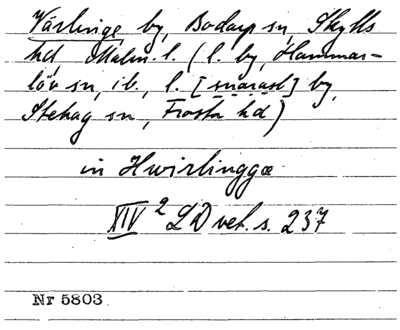 Värlinge by, Bodarp sn, Skytts
hd, Malm. l. (l. by, Hammar-
löv sn, ib., l. [snarast] by,
Stehag sn, Frosta hd)
in Hwirlinggæ
XIV 2 LD vet. s. 237
Nr 5803